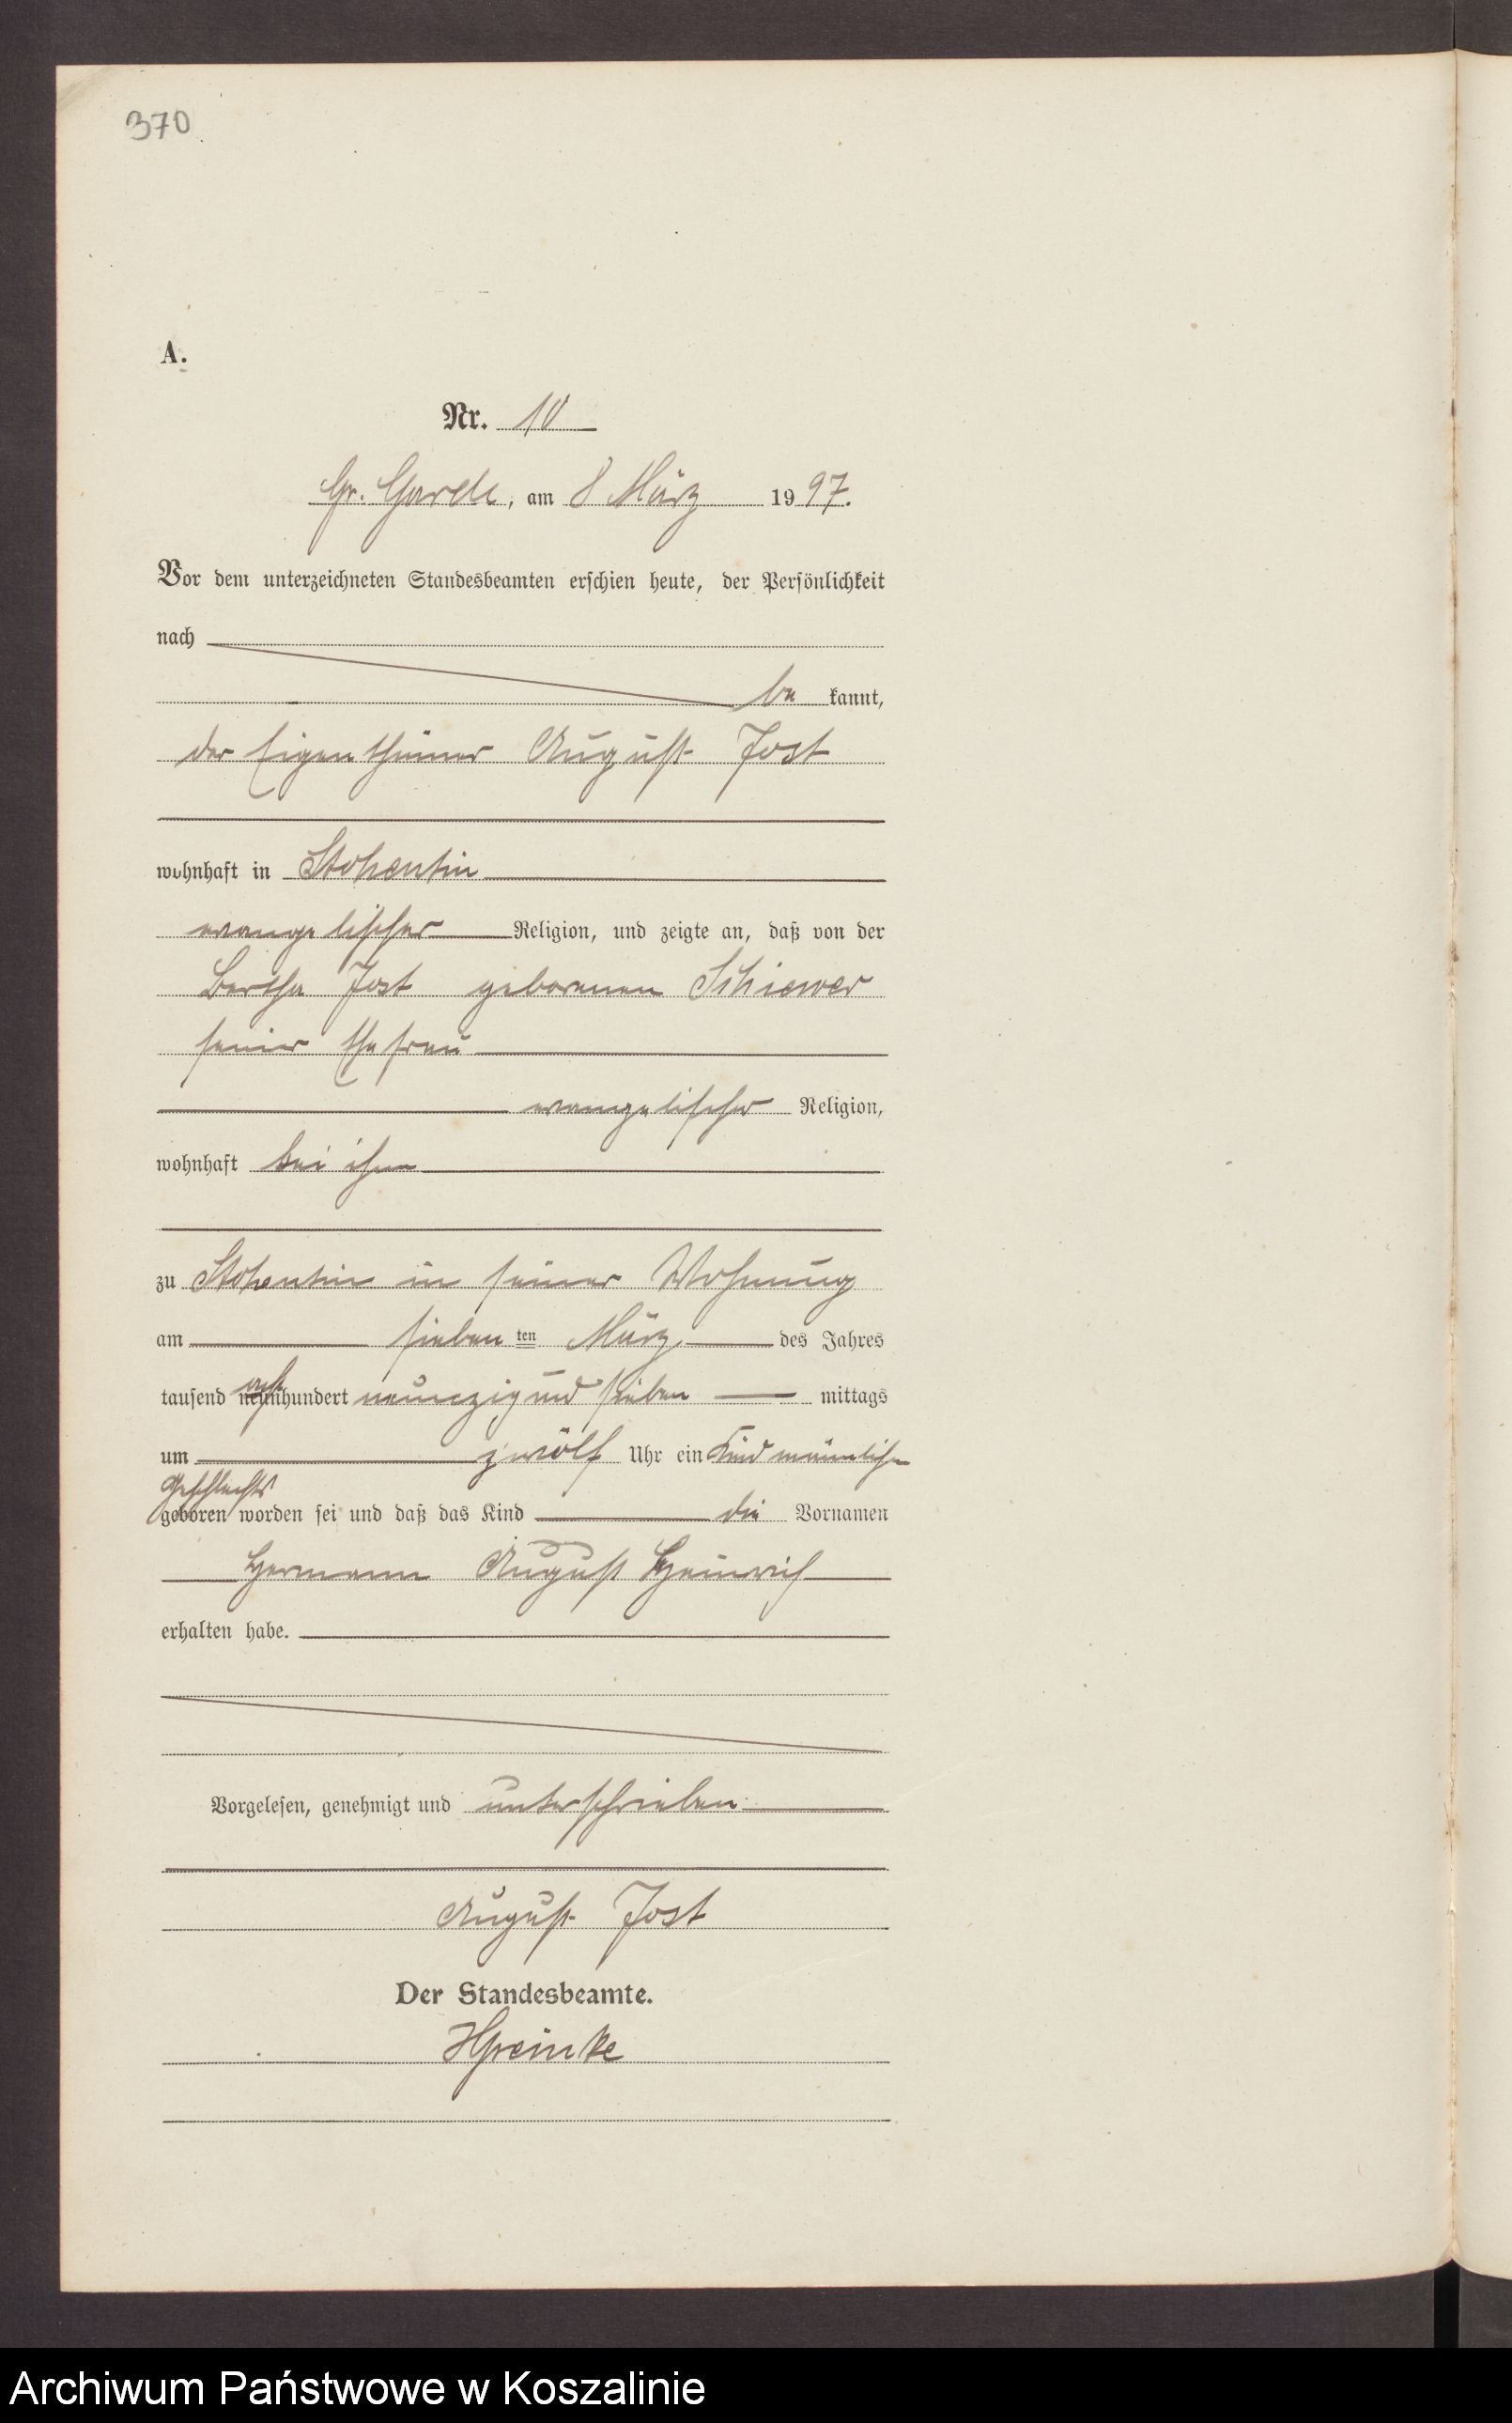 370
A.
Nr. 10
Gr. Garde, am 8 März 1997.
Vor dem unterzeichneten Standesbeamten erschien heute, der Persönlichkeit
nach
be kannt,
der Eigenthümer August Jost
wohnhaft in Stohentin
evangelischer Religion, und zeigte an, daß von der
Bertha Jost geborenen Schiewer
seiner Ehefrau
evangelischer Religion,
wohnhaft bei ihm
zu Stohentin in seiner Wohnung
am sieben ten März des Jahres
acht
tausend neunhundert neunzig und sieben mittags
um zwölf Uhr ein Kind männlichen
Geschlechts
geboren worden sei und daß das Kind die Vornamen
Hermann August Heinrich
erhalten habe.
Vorgelesen, genehmigt und unterschrieben
August Jost
Der Standesbeamte.
Archiwum Państwowe w Koszalinie